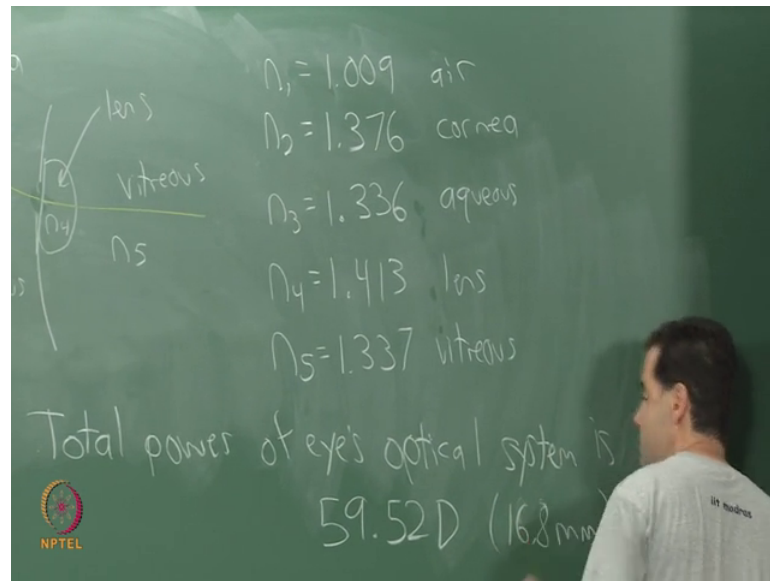 lens
vitreous
n4
n5
n1=1.009 air
n2=1.376 cornea
n3=1.336 aqueous
n4=1.413 lens
n5=1.337 vitreous
Total power of eye's optical system is
59.52D (16.8mm
NPTEL
iit madras